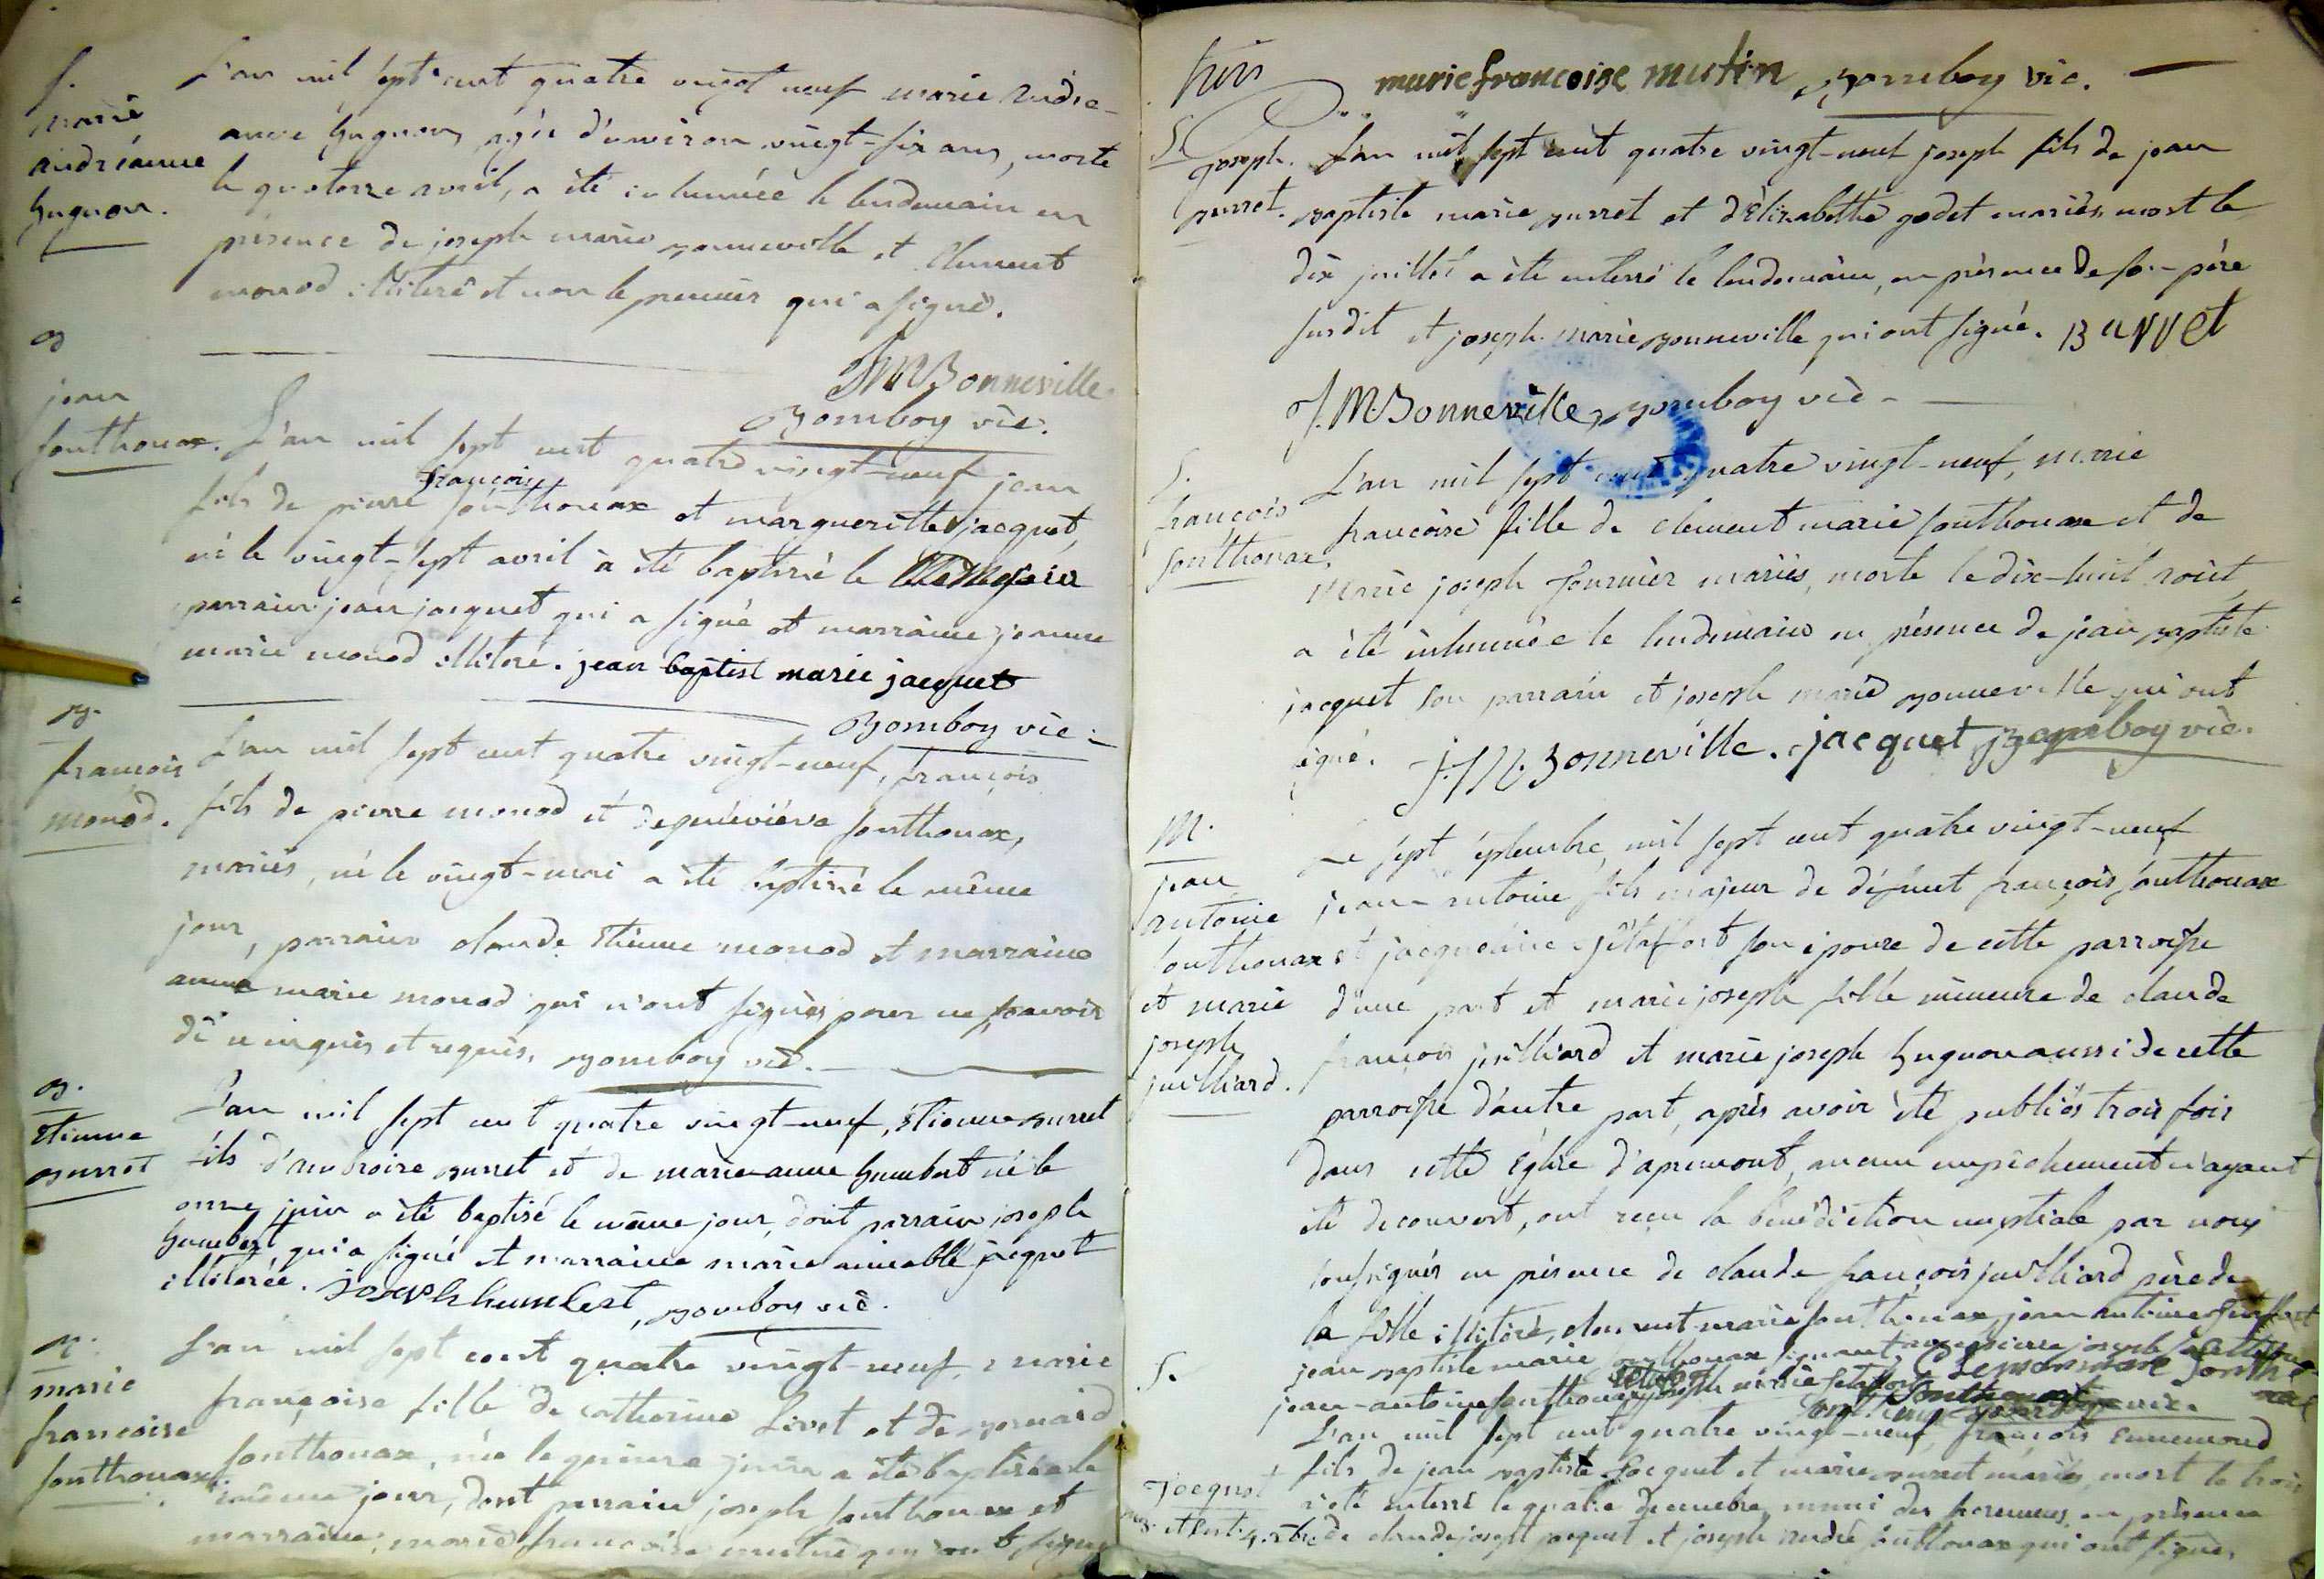 S.
marie
andréanne
huguon.
L'an mil sept cent quatre vingt neuf marie andre-
anne huguon, agée d'environ vingt-six ans, morte
le quatorze avril, a été inhumée le lendemain en
présence de joseph marie bonneville et Clement
monod illiteré et non le premier qui a signé.
JMBonneville.
Bomboy vic.
B
jean
fonthouax.
L'an mil sept cent quatre vingt-neuf jean
françois
fils de pierre fonthouax et margueritte jacquet,
né le vingt-sept avril a été baptisé le
parrain jean jacquet qui a signé et marraine jeanne
marie monod illiteré. jean baptist marie jacquet
Bomboy vic.
B.
françois
monod.
L'an mil sept cent quatre vingt-neuf, françois
fils de pierre monod et de geneviéve fonthouax,
mariés, né le vingt-mai a été baptisé le même
jour, parrain claude Etienne monod et marraine
anne marie monod qui n'ont signés pour ne scavoir
de ce enquis et requis. Bomboy vic.
B.
Etienne
burret
L'an mil sept cent quatre vingt-neuf, Etienne burret
fils d'ambroise burret et de marie anne humbert né le
onze juin a été baptisé le même jour, dont parrain joseph
humbert, qui a signé et marraine marie aimable jacquet
illiterée. joseph humbert, Bomboy vic.
B.
marie
francoise
fonthouax
L'an mil sept cent quatre vingt-neuf, marie
françoise fille de catherine Livet et de bernard
fonthouax, née le quinze juin a été baptisée le
même jour, dont parrain joseph fonthouax et
marraine, marie françoise mutin qui ont signé
marie francoise mutin, Bomboy vic.
S.
joseph
burret.
L'an mil sept cent quatre vingt-neuf joseph fils de jean
baptiste marie burret et d'Elizabette godet mariés, mort le
dix juillet a été enterré le lendemain, en présence de son père
susdit et joseph marie bonneville qui ont signé. Burret
J.M.Bonneville, Bomboy vic.
S.
francois
fonthouax,
L'an mil sept cent quatre vingt-neuf, marie
françoise fille de clement marie fonthouax et de
Marie joseph fournier mariés, morte le dix-huit aoust,
a été inhumée le lendemain en présence de jean baptiste
jacquet son parrain et joseph marie bonneville qui ont
signé. J.M.Bonneville. jacquet, Bomboy vic.
M.
jean
antoine
fonthouax
et marie
joseph
juilliard.
Le sept septembre mil sept cent quatre vingt-neuf
jean-antoine fils majeur de défunt françois fonthouax
et jacqueline son epouse de cette parroisse
d'une part et marie joseph fille mineure de claude
françois juilliard et marie joseph huguon aussi de cette
parroisse d'autre part, après avoir été publiés trois fois
dans cette Eglise d'apremont, aucun empêchement n'ayant
été decouvert, ont reçu la bénédiction nuptiale par nous
soussignés en présence de claude françois juilliard père de
la fille illiteré, clement-marie fonthouax, jean antoine
jean baptiste marie fonthouax
jean-antoine fonthouax
S.
jacquet
L'an mil sept cent quatre vingt-neuf, françois
fils de jean baptiste Jacquet et marie burret mariés, mort le trois
a été enterré le quatre decembre, muni des sacremens, en présence
de claude joseph jacquet et joseph andré fonthouax qui ont signés,